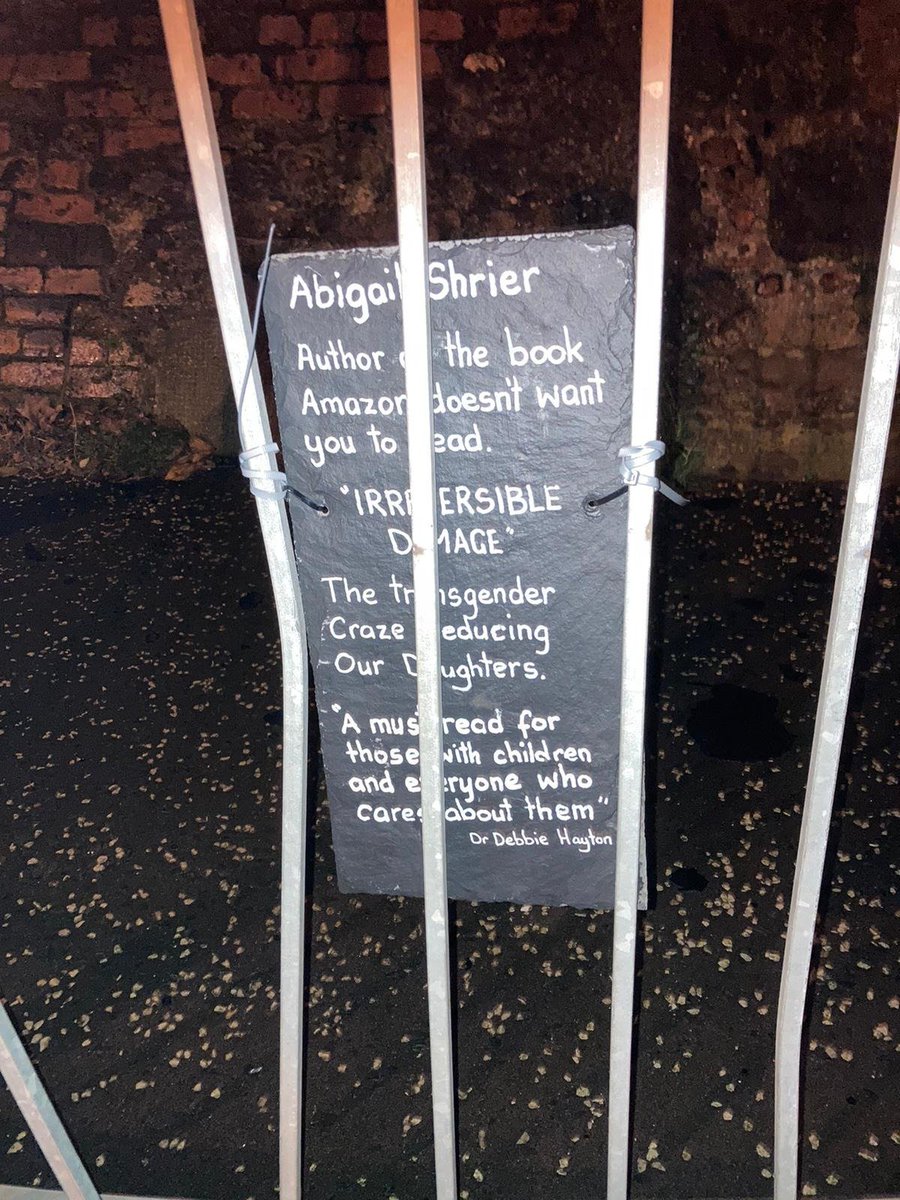 Abigail Shrier
Author of the book
Amazon doesn't want
you to read.
"IRREVERSIBLE
DAMAGE"
The transgender
Craze Seducing
Our Daughters.
"A must read for
those with children
and everyone who
cares about them"
Dr Debbie Hayton